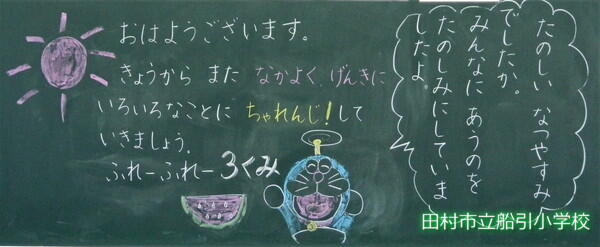 おはようございます。
きょうから また なかよく、げんきに
いろいろなことに ちゃれんじ!して
いきましょう。
ふれーふれー 3くみ
たのしい なつやすみ
でしたか。
みんなに あうのを
たのしみにしていま
したよ。
田村市立船引小学校